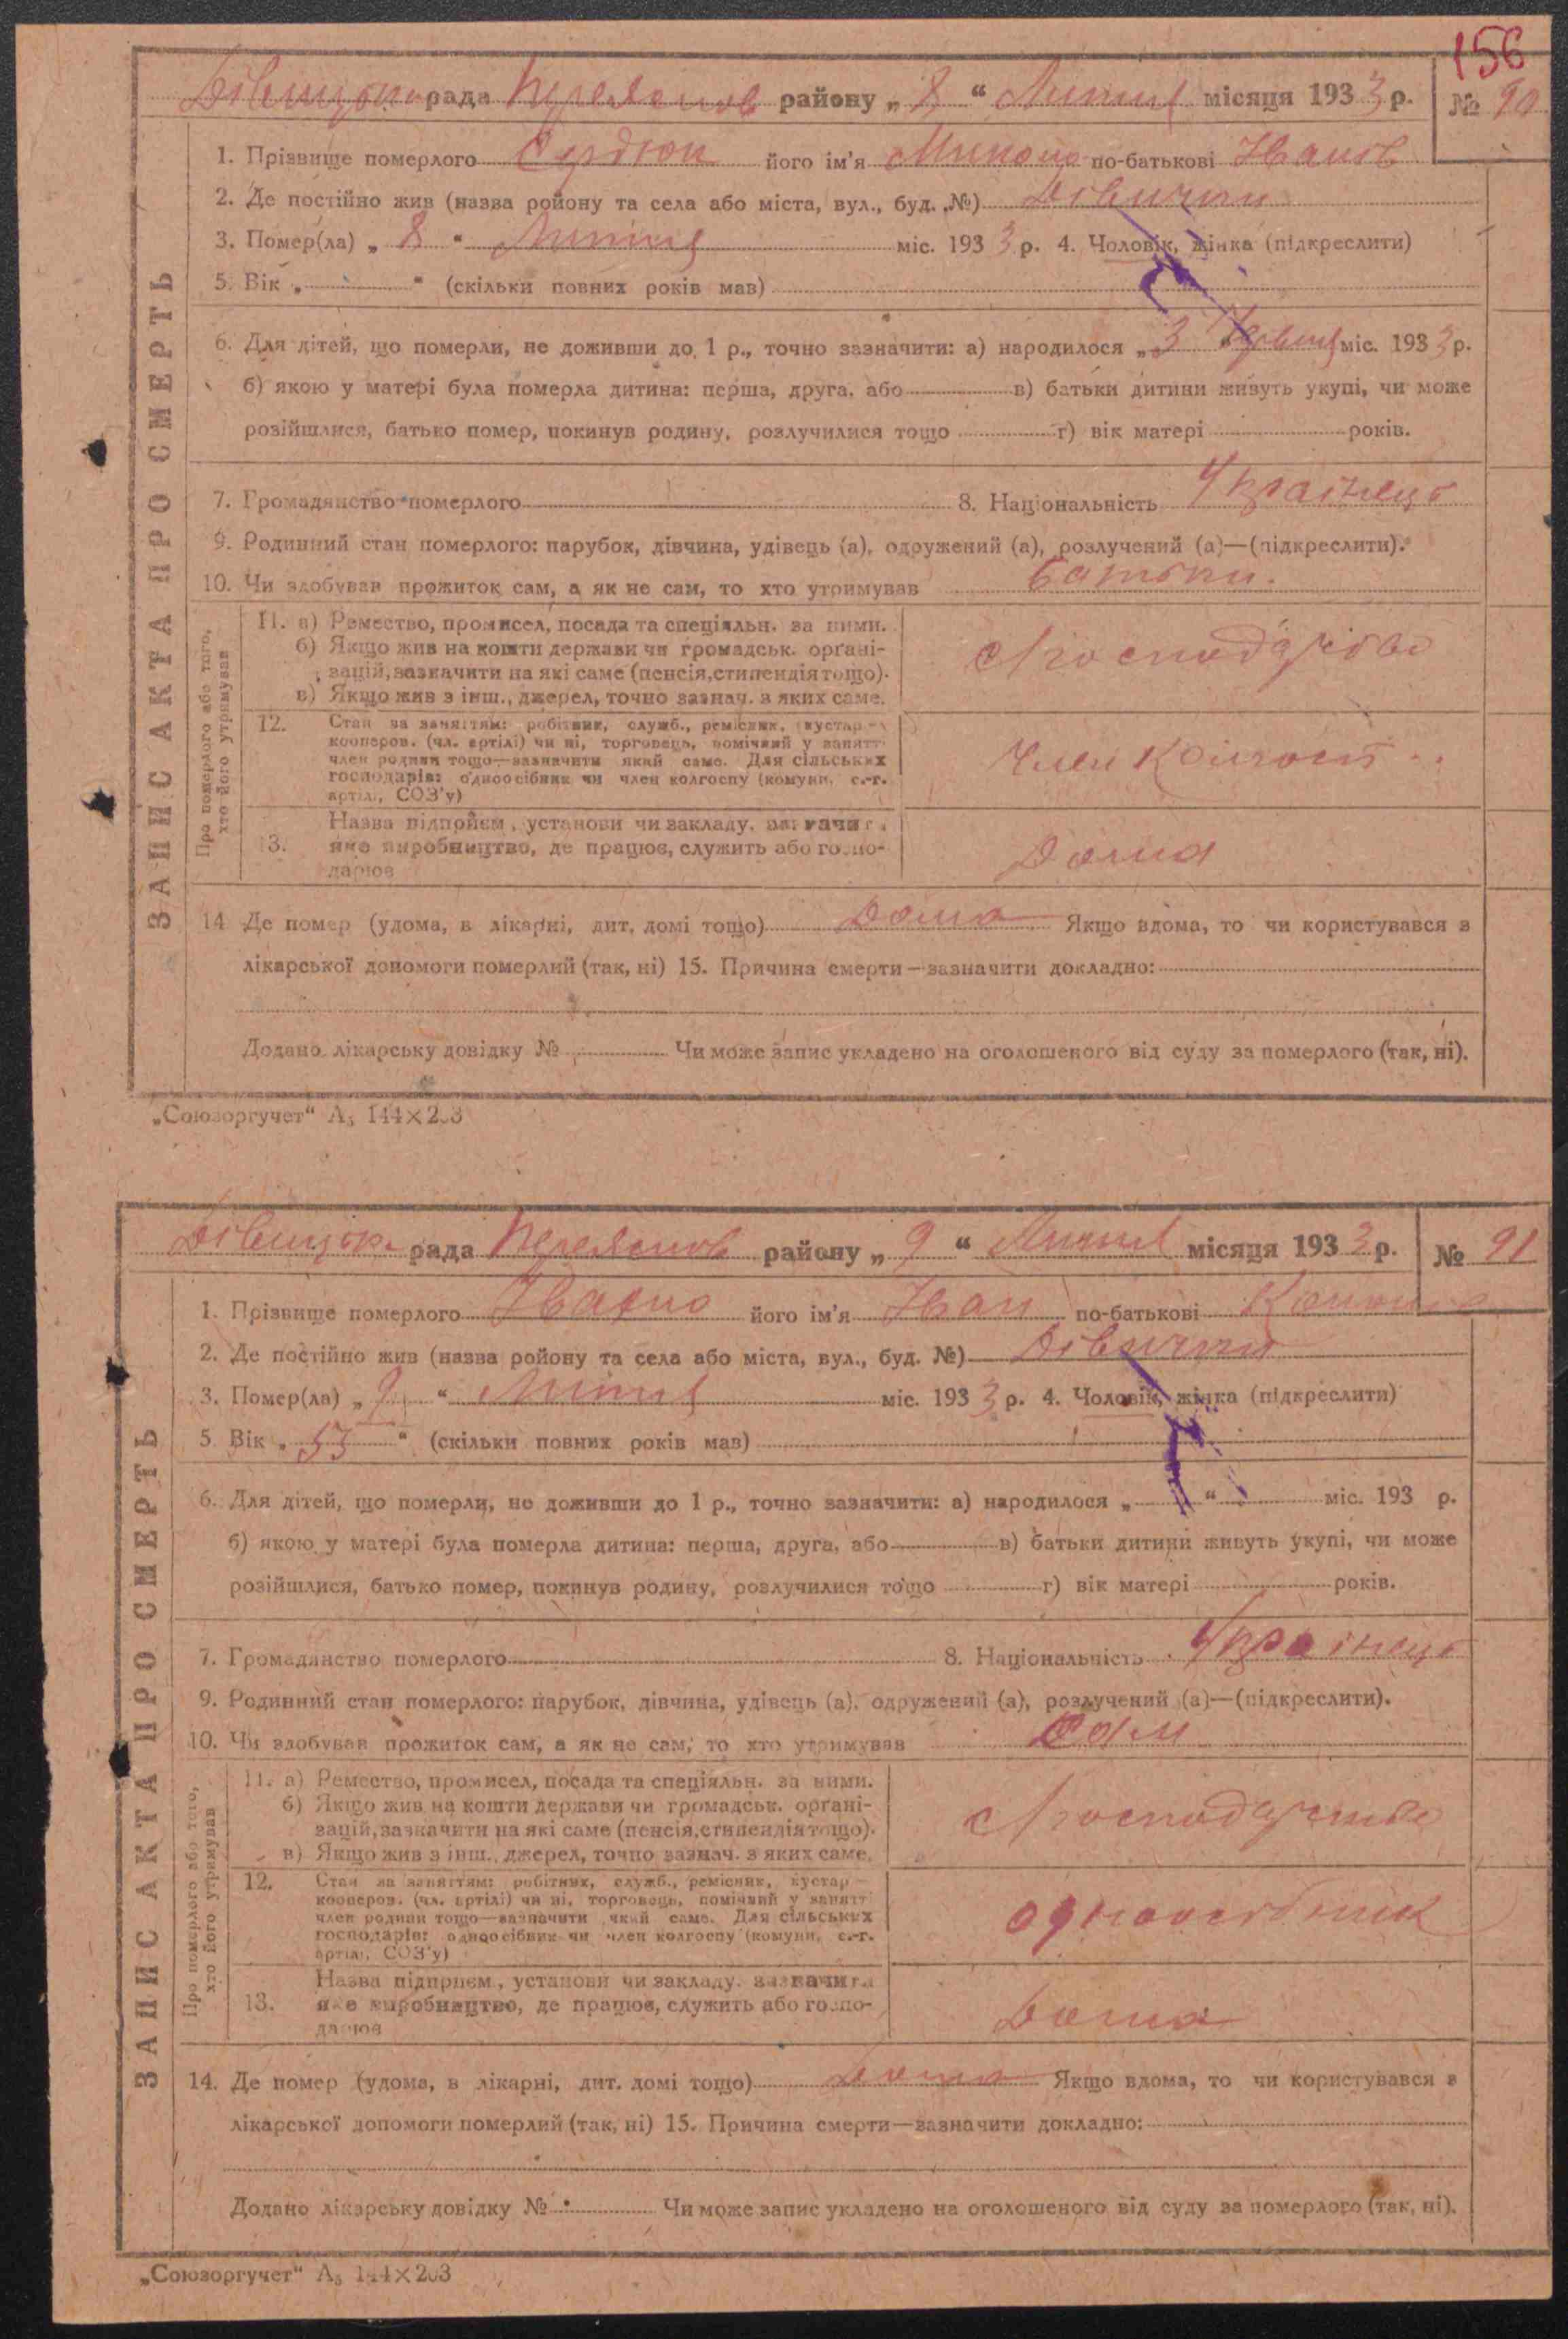 156
Дівицька рада Переяслов району „ 8 “ Липня місяця 193 3 р. № 90
1. Прізвище померлого Сердюк його ім'я Микола по-батькові Іванов
2. Де постійно жив (назва ройону та села або міста, вул., буд. №) Дівички
3. Помер(ла) „ 8 “ Липня міс. 193 3 р. 4. Чоловік, жінка (підкреслити)
5. Вік „ “ (скільки повних років мав)
6. Для дітей, що померли, не доживши до 1 р., точно зазначити: а) народилося „ 3 “ Червня міс. 193 3 р.
б) якою у матері була померла дитина: перша, друга, або в) батьки дитини живуть укупі, чи може
розійшлися, батько помер, покинув родину, розлучилися тощо г) вік матері років.
7. Громадянство померлого 8. Національність Українець
9. Родинний стан померлого: парубок, дівчина, удівець (а), одружений (а), розлучений (а)—(підкреслити).
10. Чи здобував прожиток сам, а як не сам, то хто утримував батьки.
ЗАПИС АКТА ПРО СМЕРТЬ
Про померлого або того,
хто його утримував
11. а) Ремество, промисел, посада та спеціяльн. за ними.
б) Якщо жив на кошти держави чи громадськ. органі-
зацій, зазначити на які саме (пенсія, стипендія тощо).
в) Якщо жив з інш., джерел, точно зазнач. з яких саме.
Господарство
12. Стан за заняттям: робітник, служб., ремісник, кустар—
кооперов. (чл. артілі) чи ні, торговець, помічний у занятті
член родини тощо—зазначити який саме. Для сільських
господарів: одноосібник чи член колгоспу (комуни, с.-г.
артілі, СОЗ'у)
Член Колгосп
13. Назва підприєм., установи чи закладу, зазначити
яке виробництво, де працює, служить або госпо-
дарює
Дома
14. Де помер (удома, в лікарні, дит. домі тощо) Дома Якщо вдома, то чи користувався з
лікарської допомоги померлий (так, ні) 15. Причина смерти—зазначити докладно:
Додано лікарську довідку № Чи може запис укладено на оголошеного від суду за померлого (так, ні).
„Союзоргучет“ А5 144×203
Дівицька рада Переяслов району „ 9 “ Липня місяця 193 3 р. № 91
1. Прізвище померлого його ім'я Іван по-батькові
2. Де постійно жив (назва ройону та села або міста, вул., буд. №) Дівички
3. Помер(ла) „ 9 “ Липня міс. 193 3 р. 4. Чоловік, жінка (підкреслити)
5. Вік „ 53 “ (скільки повних років мав)
6. Для дітей, що померли, не доживши до 1 р., точно зазначити: а) народилося „ “ міс. 193 р.
б) якою у матері була померла дитина: перша, друга, або в) батьки дитини живуть укупі, чи може
розійшлися, батько помер, покинув родину, розлучилися тощо г) вік матері років.
7. Громадянство померлого 8. Національність Українець
9. Родинний стан померлого: парубок, дівчина, удівець (а), одружений (а), розлучений (а)—(підкреслити).
10. Чи здобував прожиток сам, а як не сам, то хто утримував сам
ЗАПИС АКТА ПРО СМЕРТЬ
Про померлого або того,
хто його утримував
11. а) Ремество, промисел, посада та спеціяльн. за ними.
б) Якщо жив на кошти держави чи громадськ. органі-
зацій, зазначити на які саме (пенсія, стипендія тощо).
в) Якщо жив з інш., джерел, точно зазнач. з яких саме.
Господарство
12. Стан за заняттям: робітник, служб., ремісник, кустар—
кооперов. (чл. артілі) чи ні, торговець, помічний у занятті
член родини тощо—зазначити який саме. Для сільських
господарів: одноосібник чи член колгоспу (комуни, с.-г.
артілі, СОЗ'у)
одноосібник
13. Назва підприєм., установи чи закладу, зазначити
яке виробництво, де працює, служить або госпо-
дарює
Дома
14. Де помер (удома, в лікарні, дит. домі тощо) Дома Якщо вдома, то чи користувався з
лікарської допомоги померлий (так, ні) 15. Причина смерти—зазначити докладно:
Додано лікарську довідку № Чи може запис укладено на оголошеного від суду за померлого (так, ні).
„Союзоргучет“ А5 144×203